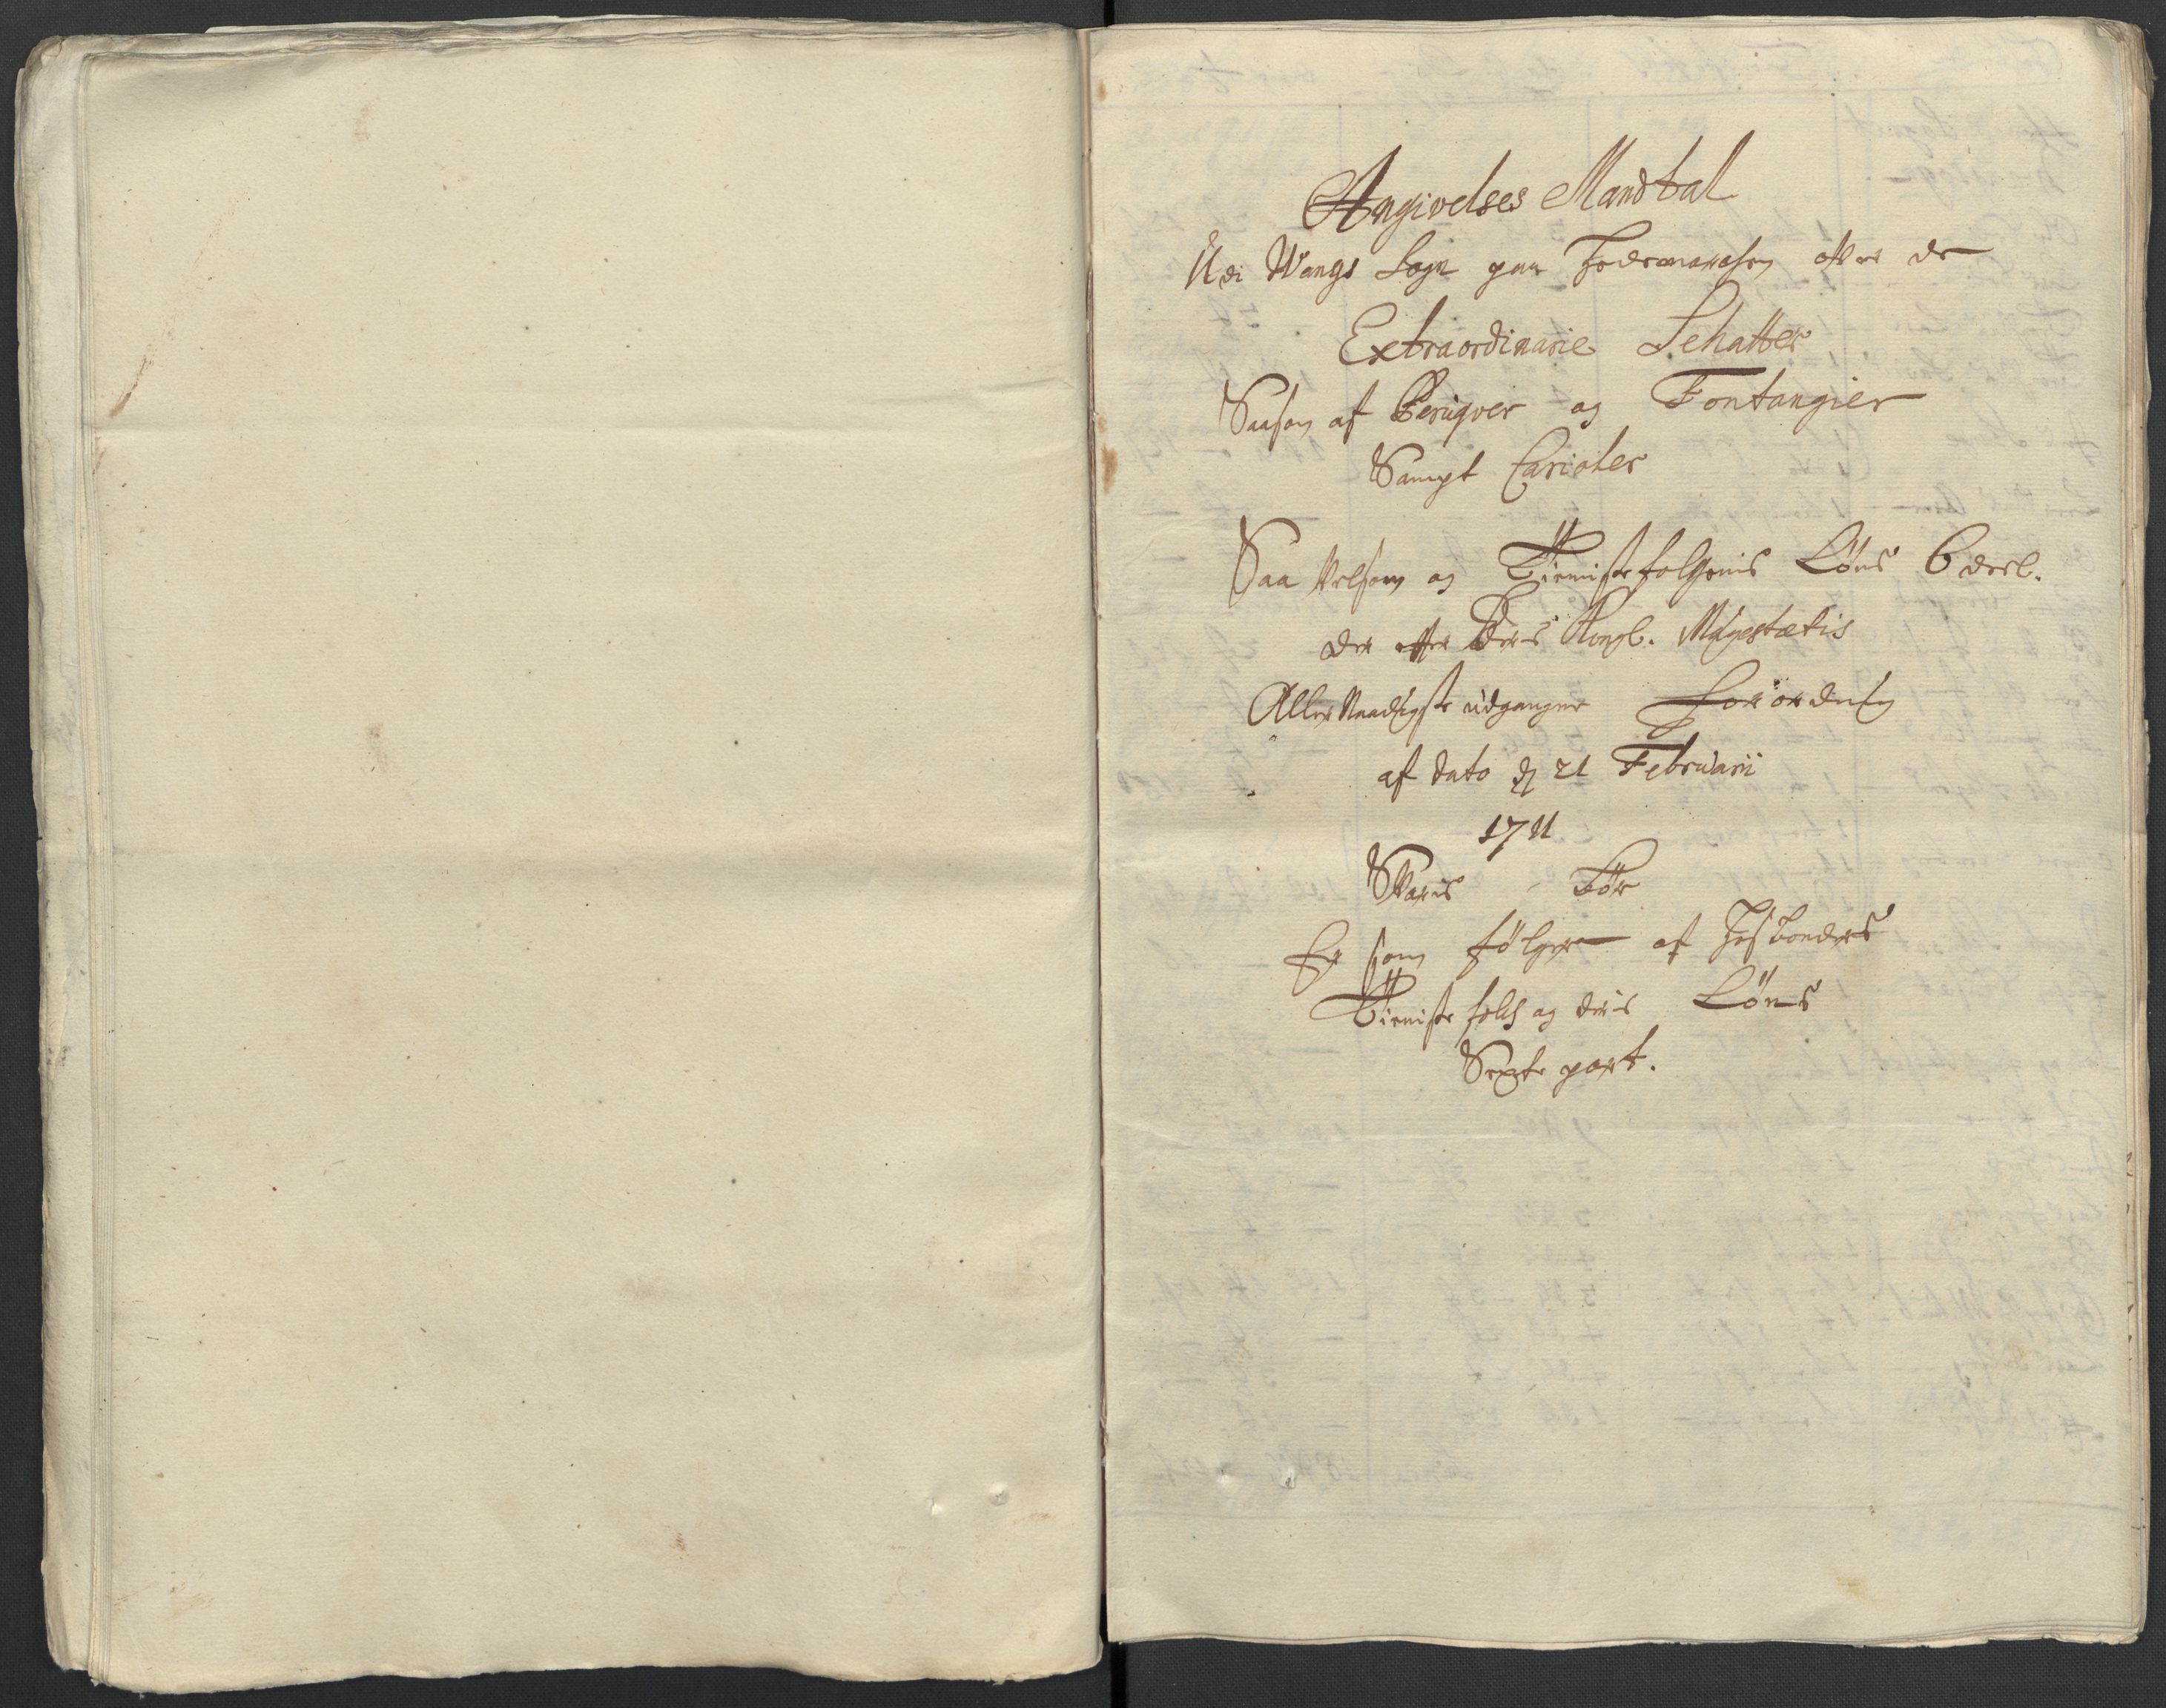 Angivelses Mandtal
Udi Wangs Sogn paa Hedemarchen ofver de
Extraordinarie Schatter
Saasom af Peruqver og Fontangier
Sampt Carioler
Saa velsom og Tienistefolchenis Løns 6 deel.
der efter Deris Kongl. Mayestætis
Aller Naadigste udgangne Forordning
af dato d 21 Februarii
1711
Svaris bør
Er som følger af Hosbonders
Tieniste folch og deris Løns
Siexte part.